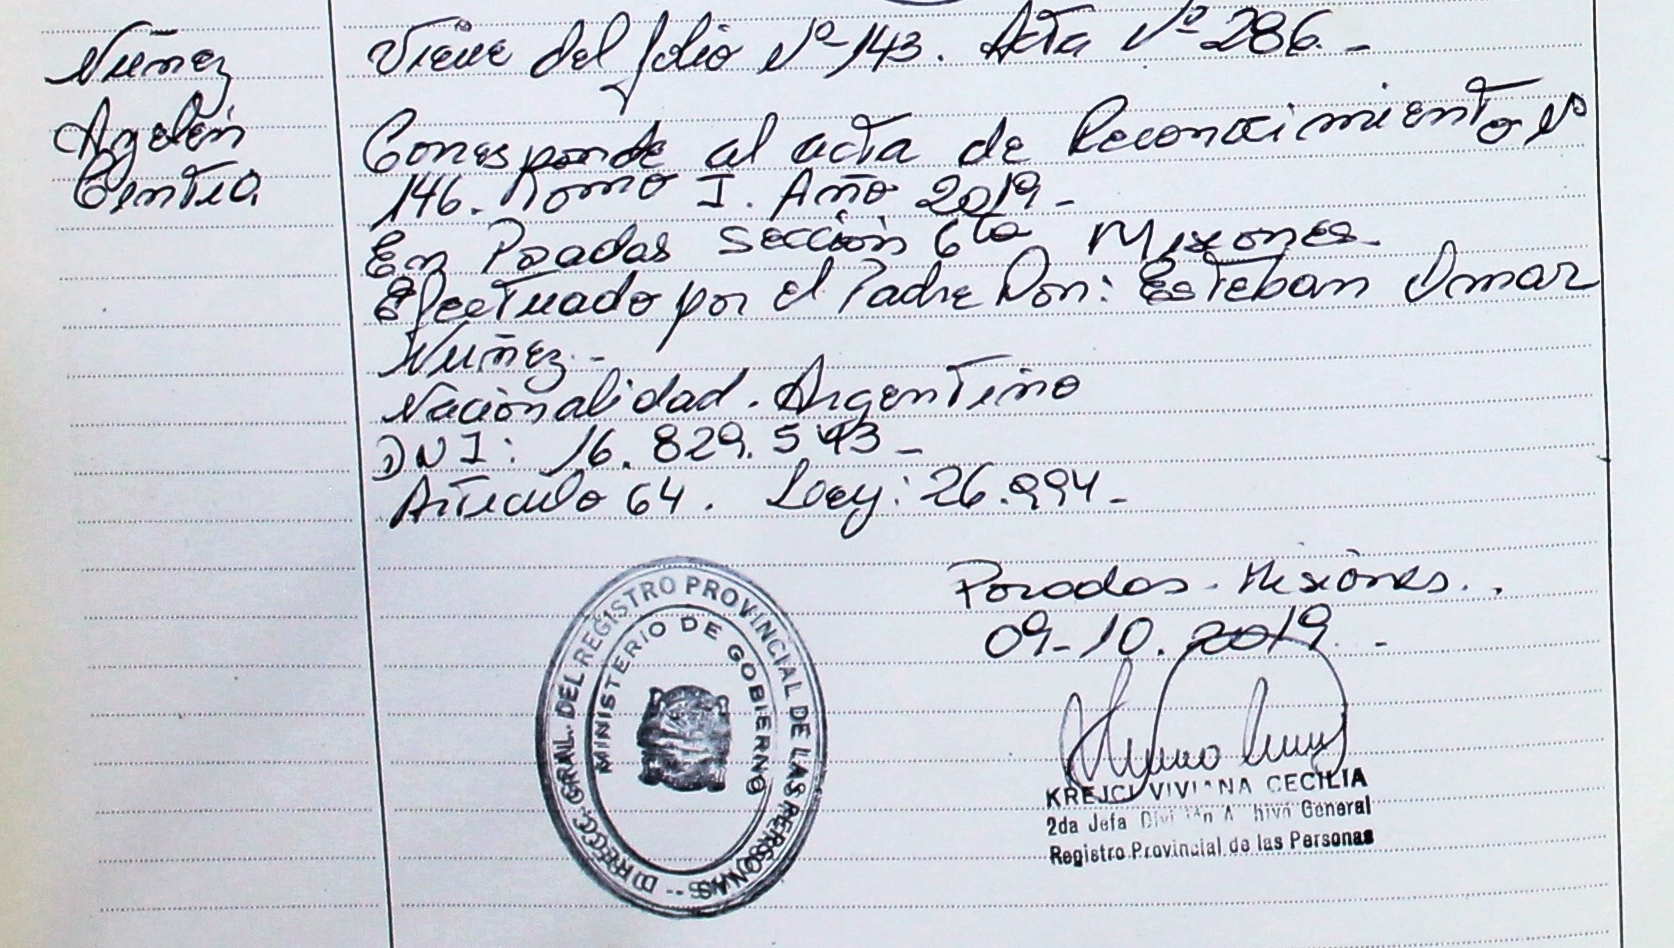 Nuñez
Ayelén
Cintia
Viene del folio Nº 143. Acta Nº 286.-
Corresponde al acta de Reconocimiento Nº
146. Tomo I. Año 2019-
En Posadas Sección 6ta Misiones-
Efectuado por el Padre Don: Esteban Omar
Nuñez.-
Nacionalidad. Argentino
DNI: 16.829.543-
Artículo 64. Ley: 26.994-
Posadas - Misiones..
09-10.2019.-
DIRECC. GRAL. DEL REGISTRO PROVINCIAL DE LAS PERSONAS
MINISTERIO DE GOBIERNO
KREJCI VIVIANA CECILIA
2da Jefa División Archivo General
Registro Provincial de las Personas